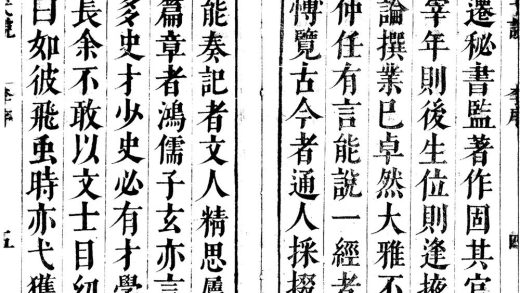 李序
四
遷秘書監著作固其官
宰年則後生位則逢掖
論撰業巳卓然大雅不
仲任有言能說一經者
愽覽古今者通人採掇
能奏記者文人精思屬
篇章者鴻儒子玄亦言
多史才少史必有才學
長余不敢以文士目
曰如彼飛虫時亦弋獲
李序
五